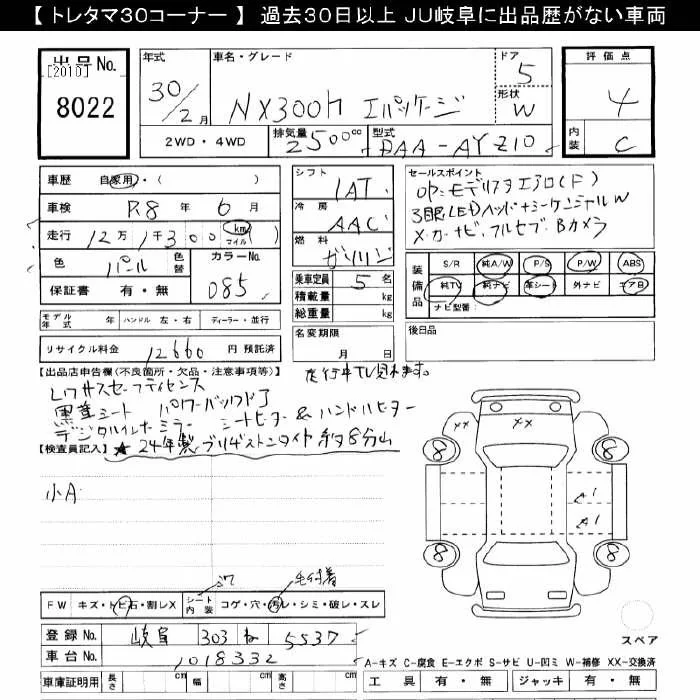 【 トレタマ30コーナー 】 過去30日以上 JU岐阜に出品歴がない車両
出品No. [2010] 8022
年式 30/2月
車名・グレード NX300h Iパッケージ
ドア 5
形状 W
評価点 4
内装 C
2WD・4WD
排気量 2500 cc
型式 DAA-AYZ10
車歴 自家用・( )
車検 R8年 6月
走行 12万1千300 km マイル
色 パール 色替
カラーNo. 085
保証書 有・無
シフト IAT
冷房 AAC
燃料 ガソリン
乗車定員 5名
積載量 kg
総重量 kg
名変期限 月 日
セールスポイント
OP:モデリスタエアロ(F)
3眼LEDヘッド+シーケンシャルW
×.カーナビ.フルセグ.Bカメラ
装備品 S/R 純A/W P/S P/W ABS
純TV 純ナビ 革シート 外ナビ エアB
ナビ型番
後日品
モデル年式 年 ハンドル 左・右 ディーラー・並行
リサイクル料金 12660 円 預託済
【出品店申告欄(不良箇所・欠品・注意事項等)】
走行中TV見れます。
レクサスセーフティセンス
黒革シート パワーバックドア
デジタルインナーミラー シートヒーター & ハンドルヒーター
★24年製ブリヂストンタイヤ 約8分山
【検査員記入】
小A
XX
8 8
A1
A1
8 8
スペア
シワ
毛付着
FW キズ・トビ石・割レX シート内装 コゲ・穴・汚レ・シミ・破レ・スレ
登録No. 岐阜 303 ね 5537
車台No. 1018332
車庫証明用 長さ cm 幅 cm 高さ cm
A-キズ C-腐食 E-エクボ S-サビ U-凹ミ W-補修 XX-交換済
工具 有・無 ジャッキ 有・無